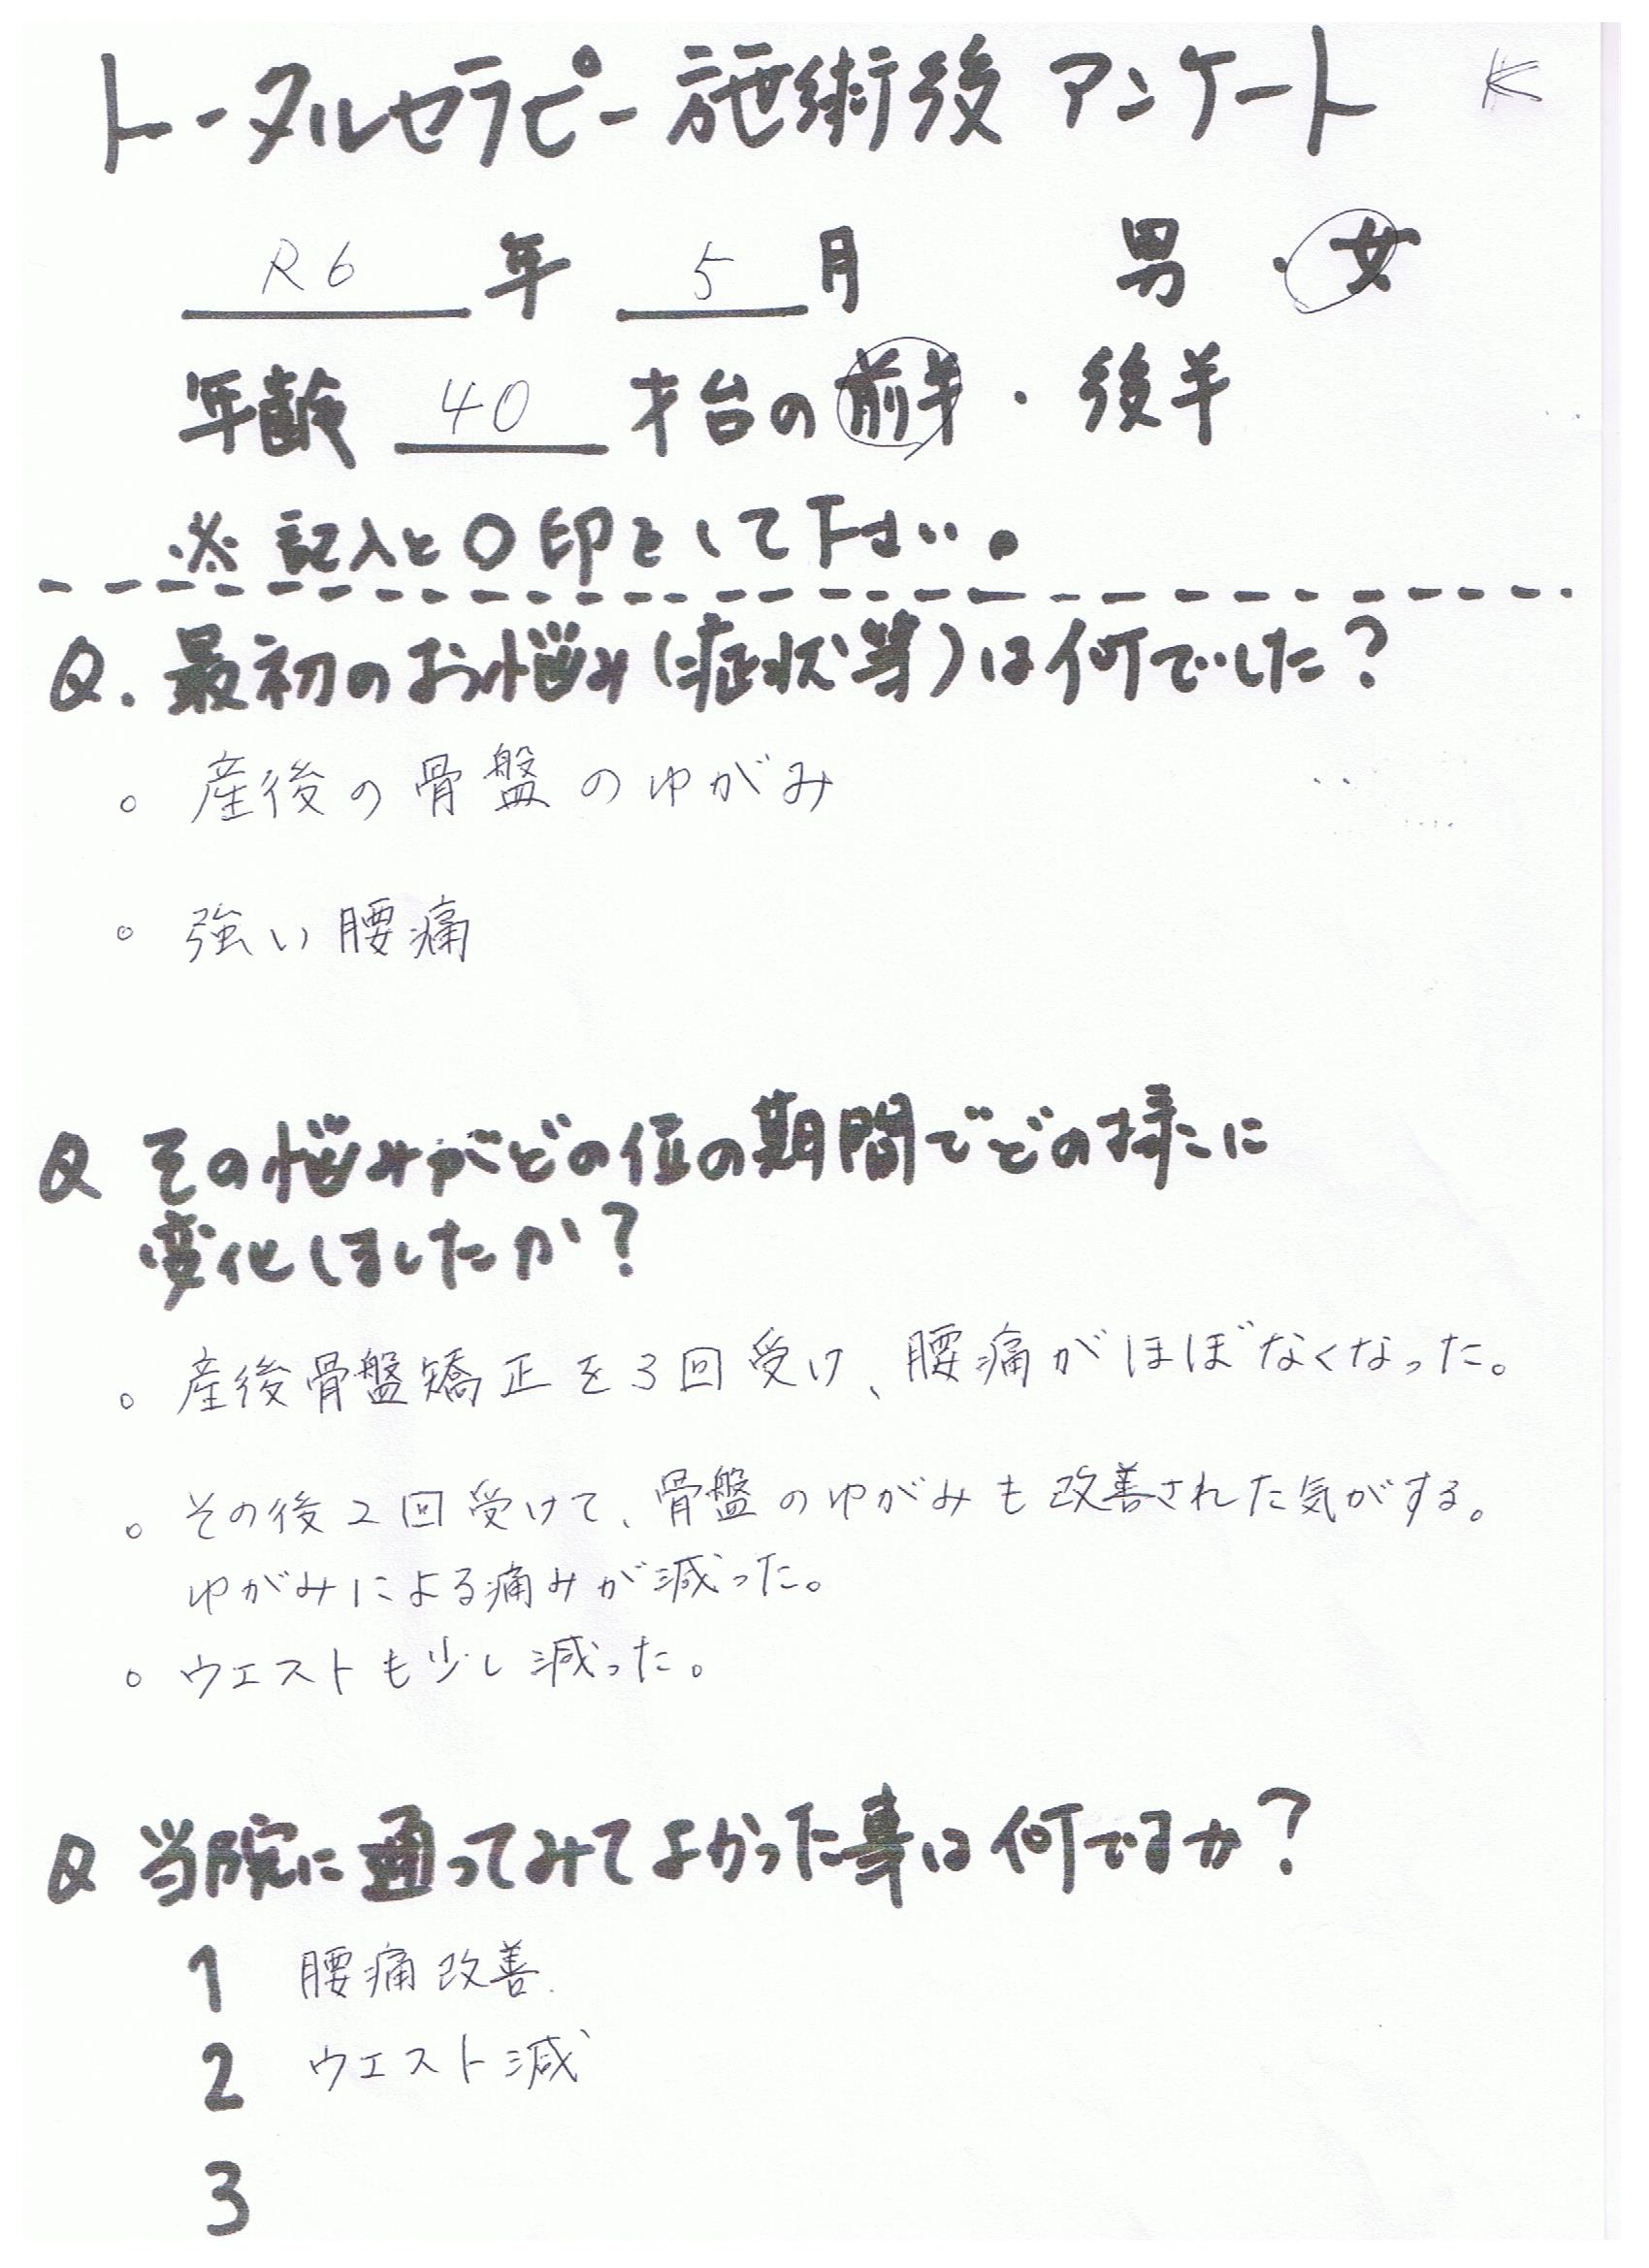 トータルセラピー施術後 アンケート K
R6 年 5 月 男・女
年齢 40 才台の前半・後半
※ 記入と〇印をして下さい。
Q. 最初のお悩み(症状等)は何でした?
。産後の骨盤のゆがみ
。強い腰痛
Q その悩みがどの位の期間でどの様に
変化しましたか?
。産後骨盤矯正を3回受け、腰痛がほぼなくなった。
。その後2回受けて、骨盤のゆがみも改善された気がする。
ゆがみによる痛みが減った。
。ウエストも少し減った。
Q 当院に通ってみてよかった事は何ですか?
1 腰痛改善.
2 ウエスト減
3